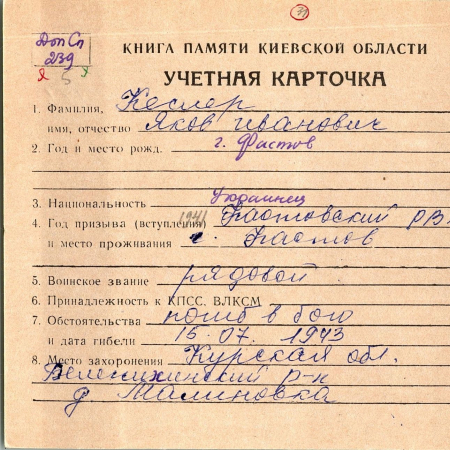 Доп Сп
239
Я 5 Я
КНИГА ПАМЯТИ КИЕВСКОЙ ОБЛАСТИ
УЧЕТНАЯ КАРТОЧКА
1. Фамилия, Кеслер
имя, отчество Яков Иванович
2. Год и место рожд. г. Фастов
3. Национальность Украинец
4. Год призыва (вступления) 1941 Фастовский РВ
и место проживания г. Фастов
5. Воинское звание рядовой
6. Принадлежность к КПСС, ВЛКСМ
7. Обстоятельства погиб в бою
и дата гибели 15.07.1943
8. Место захоронения Курская обл.
р-н
д. Малиновка